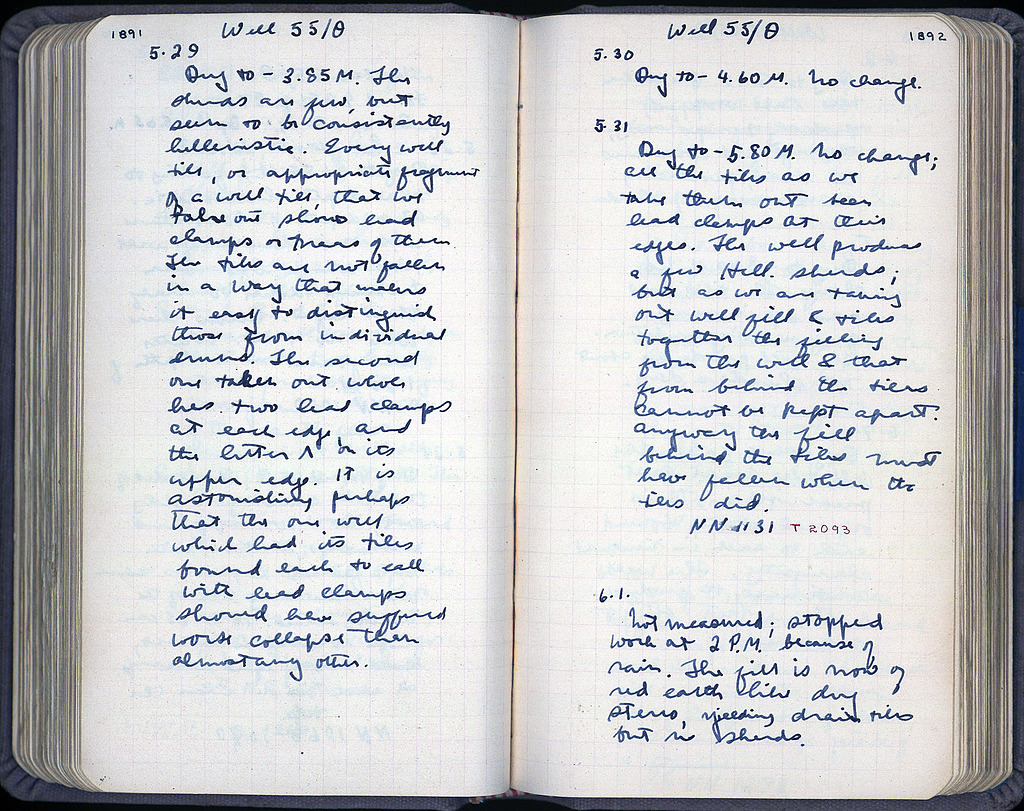 1891
Well 55/Θ
5.29
Dug to - 3.85 M. The
sherds are few, but
seem to be consistently
hellenistic. Every well
tile, or appropriate fragment
of a well tile, that we
take out shows lead
clamps or traces of them.
The tiles are not fallen
in a way that makes
it easy to distinguish
those from individual
drums. The second
one taken out whole
has two lead clamps
at each edge, and
the letter Λ on its
upper edge. It is
astonishing perhaps
that the one well
which had its tiles
bound each to each
with lead clamps
should have suffered
worse collapse than
almost any other.
Well 55/Θ
1892
5.30
Dug to - 4.60 M. No change.
5.31
Dug to - 5.80 M. No change;
all the tiles as we
take them out
lead clamps at their
edges. The well produces
a few Hell. sherds;
but as we are taking
out well fill & tiles
together the filling
from the well & that
from behind the tiles
cannot be kept apart.
anyway the fill
behind the tiles must
have fallen when the
tiles did.
NN 1131 T 2093
6.1.
Not measured; stopped
work at 2 P.M. because of
rain. The fill is now of
red earth like
stereo, yielding drain tiles
but no sherds.